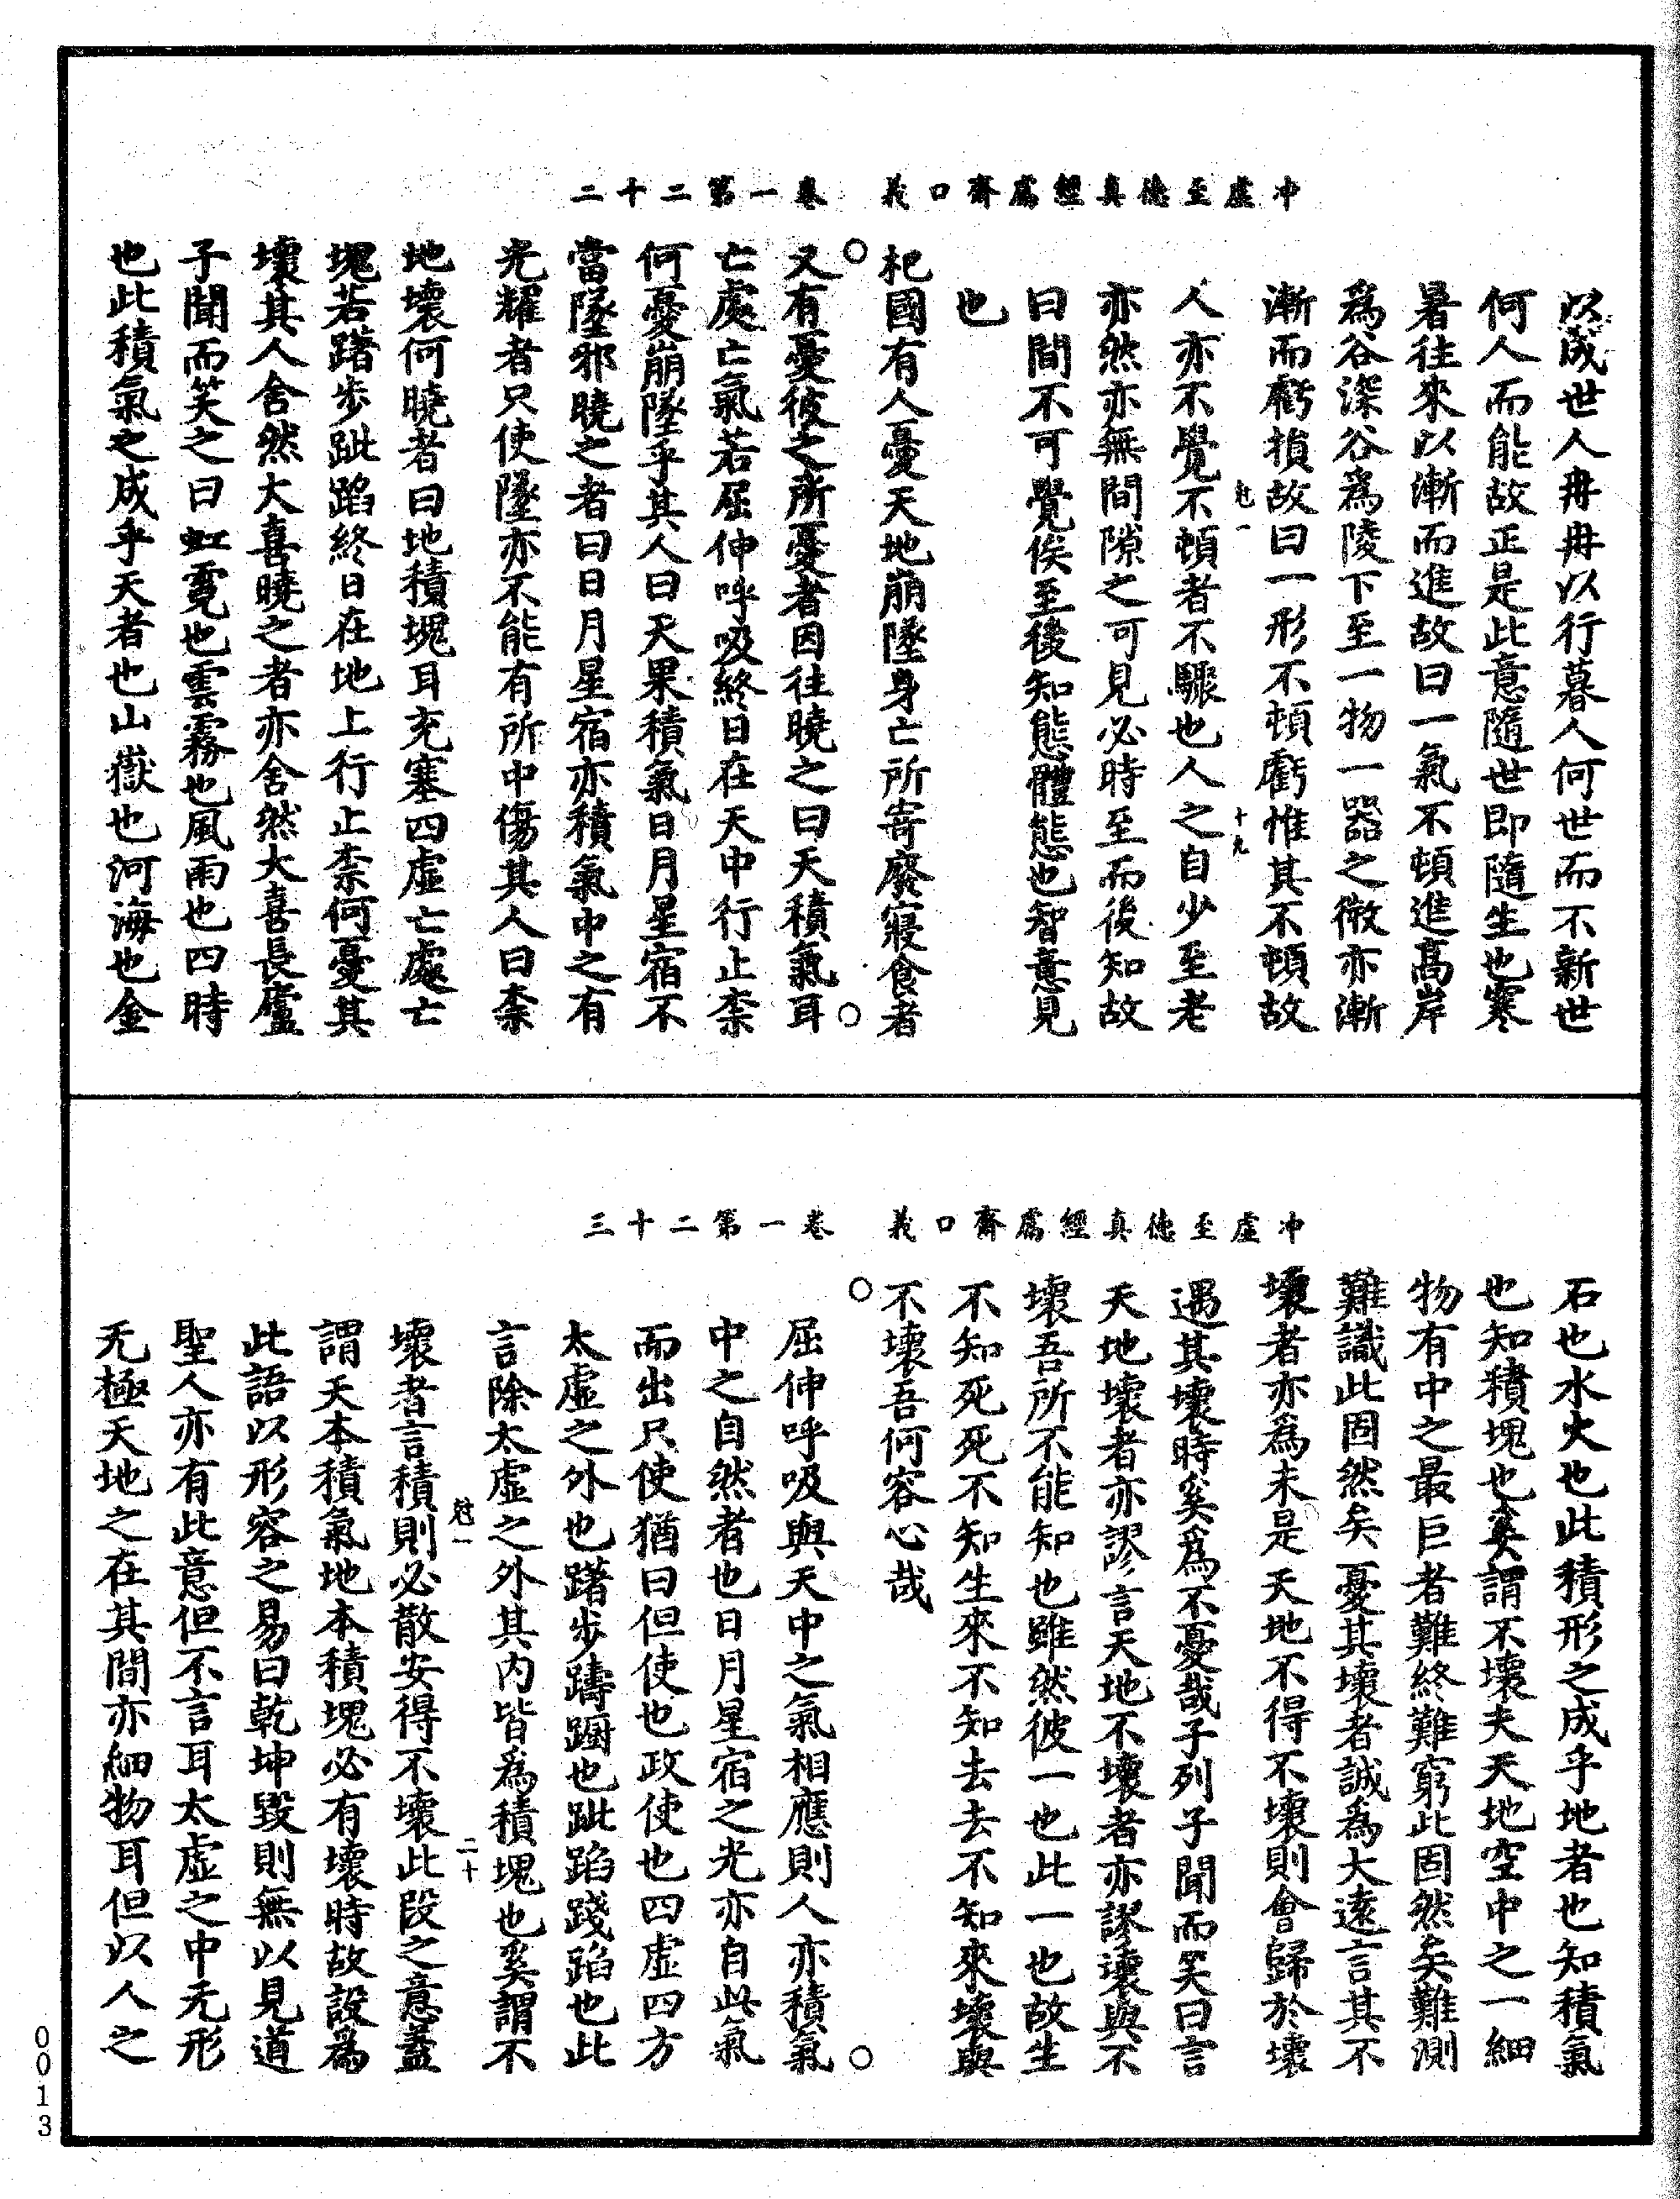 冲虛至德真經鬳齋口義　卷一第二十二
以成世人冉冉以行暮人何世而不新世
何人而能故正是此意隨世即隨生也寒
暑往來以漸而進故曰一氣不頓進高岸
為谷深谷為陵下至一物一器之微亦漸
漸而虧損故曰一形不頓虧惟其不頓故
尅一　十九
人亦不覺不頓者不驟也人之自少至老
亦然亦無間隙之可見必時至而後知故
曰間不可覺俟至後知態體態也智意見
也
杞國有人憂天地崩墜身亡所寄廢寢食者
○又有憂彼之所憂者因往曉之曰天積氣耳○
亡處亡氣若屈伸呼吸終日在天中行止柰
何憂崩墜乎其人曰天果積氣日月星宿不
當墜邪曉之者曰日月星宿亦積氣中之有
光耀者只使墜亦不能有所中傷其人曰柰
地壞何曉者曰地積塊耳充塞四虛亡處亡
塊若躇步跐蹈終日在地上行止柰何憂其
壞其人舍然大喜曉之者亦舍然大喜長廬
子聞而笑之曰虹霓也雲霧也風雨也四時
也此積氣之成乎天者也山嶽也河海也金
冲虛至德真經鬳齋口義　卷一第二十三
石也水火也此積形之成乎地者也知積氣
也知積塊也奚謂不壞夫天地空中之一細
物有中之最巨者難終難窮此固然矣難測
難識此固然矣憂其壞者誠為大遠言其不
壞者亦為未是天地不得不壞則會歸於壞
遇其壞時奚為不憂哉子列子聞而笑曰言
天地壞者亦謬言天地不壞者亦謬壞與不
壞吾所不能知也雖然彼一也此一也故生
不知死死不知生來不知去去不知來壞與
不壞吾何容心哉
○屈伸呼吸與天中之氣相應則人亦積氣○
中之自然者也日月星宿之光亦自此氣
而出只使猶曰但使也政使也四虛四方
太虛之外也躇步躊躕也跐蹈踐蹈也此
言除太虛之外其內皆為積塊也奚謂不
尅一　二十
壞者言積則必散安得不壞此段之意蓋
謂天本積氣地本積塊必有壞時故設為
此語以形容之易曰乾坤毀則無以見道
聖人亦有此意但不言耳太虛之中无形
无極天地之在其間亦細物耳但以人之
0013